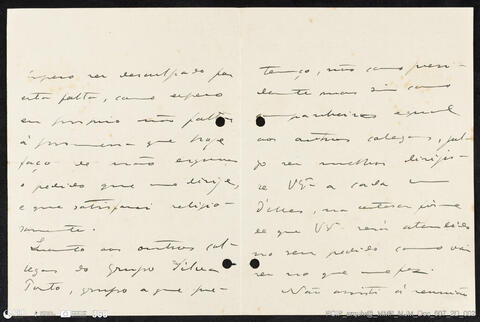 Espero ser desculpado por
esta falta, como espero
eu proprio não faltar
á promessa que hoje
faço de não esquecer
o pedido que me dirige,
e que satisfarei religio-
samente.
Quanto aos outros col-
legas do Grupo Silva
Porto, grupo a que per-
tenço, não como presi-
dente mas sim como
companheiro egual
aos outros collegas, jul-
go ser melhor dirigir-
se VEª a cada um
d'elles, na certesa
de que VE será attendido
no seu pedido como vai
ser no que me fez.
Não assisti á reunião